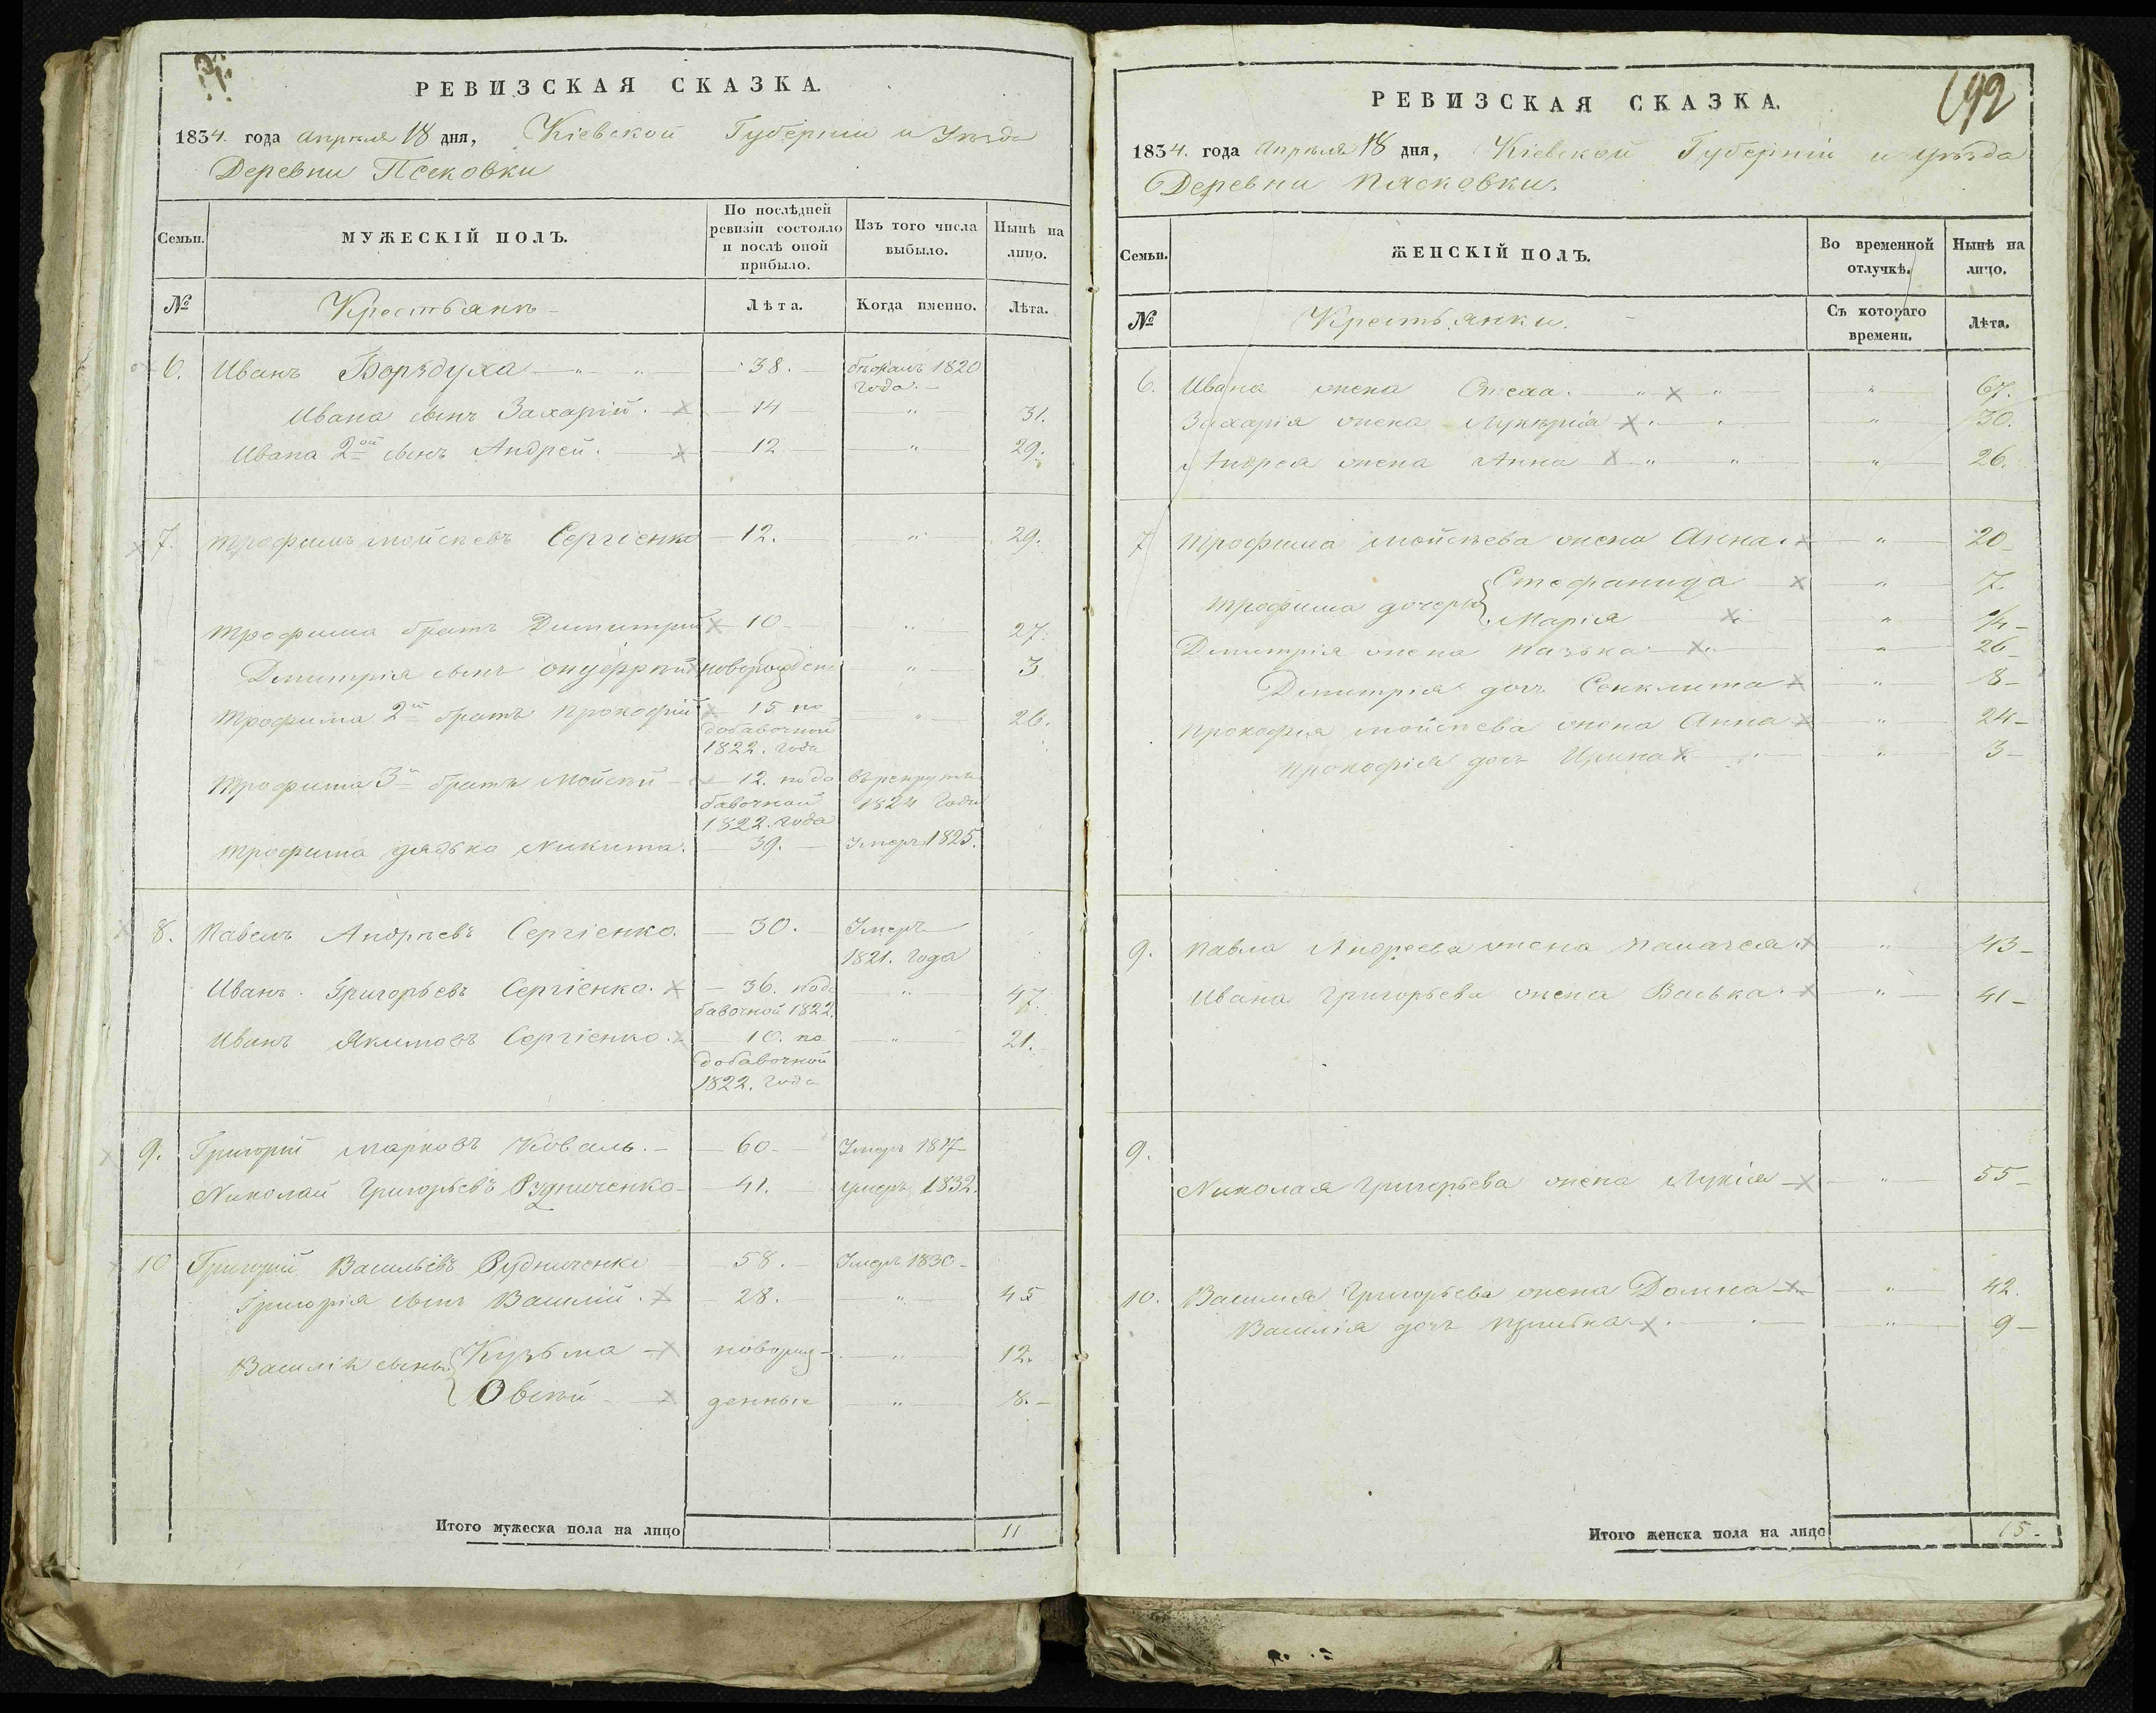 РЕВИЗСКАЯ СКАЗКА.
1834. года Апреля 18 дня, Кіевской Губерніи и Уезда
Деревни Псековки
Семьи. МУЖЕСКІЙ ПОЛЪ. По послѣдней ревизіи состояло и послѣ оной прибыло. Изъ того числа выбыло. Нынѣ на лицо.
№ Крестьянъ Лѣта. Когда именно. Лѣта.
6. Иванъ 38. 1820 года.
Ивана сынъ Захарій. 14 " 31.
Ивана 2ой сынъ Андрей. 12 " 29.
7. Трофимъ Мойсеевъ Сергіенко 12. " 29.
Трофима братъ Димитрій 10 " 27.
Димитрія сынъ Онуфрій новорожден " 3
Трофима 2й братъ Прокофій 15 по " 26.
добавочной
1822. года
Трофима 3й братъ Мойсей 12. по до въ рекруты
бавочной 1824 года
1822. года
Трофима дядько Никита. 39. Умеръ 1825.
8. Павелъ Андреевъ Сергіенко. 30. Умеръ
1821. года
Иванъ Григорьевъ Сергіенко. 36. подо " 47.
бавочной 1822.
Иванъ Якимовъ Сергіенко. 10. по " 21.
добавочной
1822. года
9. Григорій Марковъ Коваль. 60 Умеръ 1817
Николай Григорьевъ Рудниченко 41. Умеръ 1832.
10 Григорій Васильевъ Рудниченко 58. Умеръ 1830
Григорія сынъ Василій. 28. " 45
Василія сыны Кузьма новорож " 12.
Овсей денные " 8.
Итого мужеска пола на лицо 11
192
РЕВИЗСКАЯ СКАЗКА.
1834. года Апреля 18 дня, Кіевской Губерніи и уезда
Деревни Пясковки.
Семьи. ЖЕНСКІЙ ПОЛЪ. Во временной отлучкѣ. Нынѣ на лицо.
№ Крестьянки. Съ котораго времени. Лѣта.
6. Ивана жена " 67.
Захарія жена Лукерія " 30.
Андрея жена Анна " 26.
7 Трофима Мойсеева жена Анна " 20
Трофима дочери Стефанида " 7.
Марія "
Димитрія жена Казька " 26
Димитрія дочь Сенклита " 8
Прокофія Мойсеева жена Анна " 24
Прокофія дочь Ирина " 3
9. Павла Андреева жена " 43
Ивана Григорьева жена Васька " 41
9.
Николая Григорьева жена Лукія " 55
10. Василія Григорьева жена Домна " 42.
Василія дочь " 9
Итого женска пола на лицо 15.